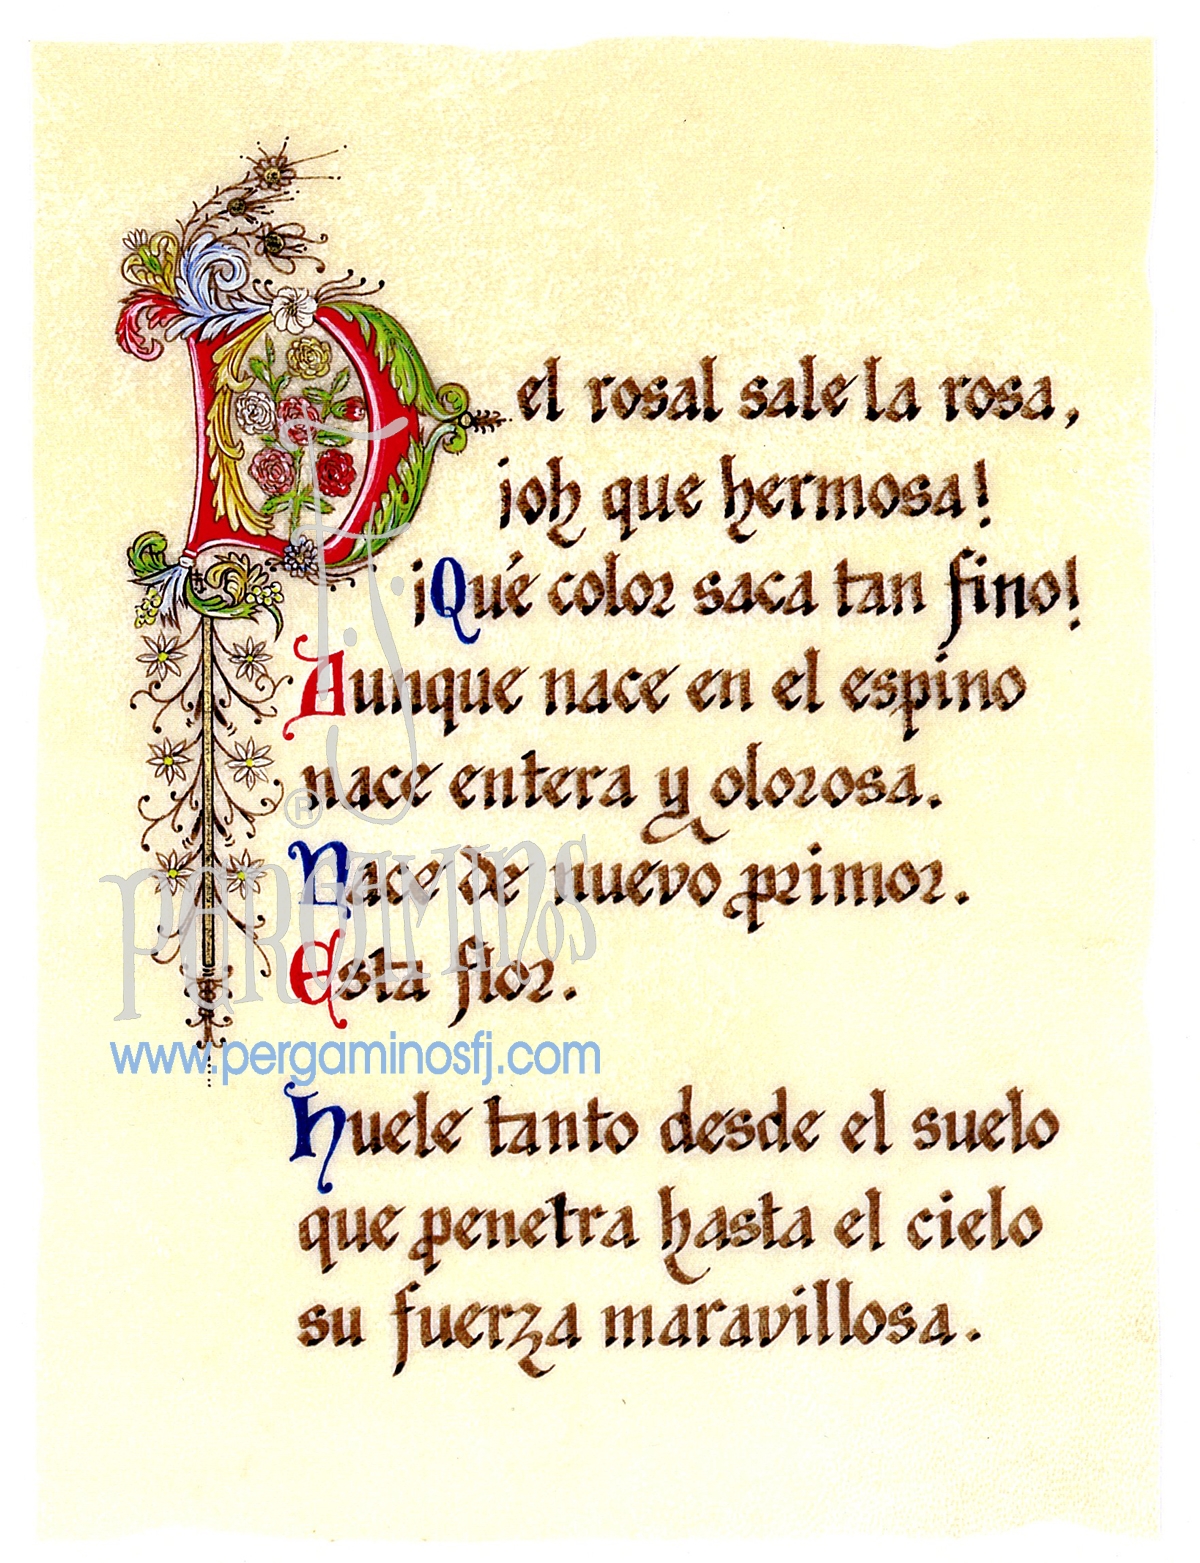 Del rosal sale la rosa,
¡oh que hermosa!
¡Qué color saca tan fino!
Aunque nace en el espino
nace entera y olorosa.
Nace de nuevo primor.
Esta flor.
Huele tanto desde el suelo
que penetra hasta el cielo
su fuerza maravillosa.
®
PERGAMINOS
www.pergaminosfj.com